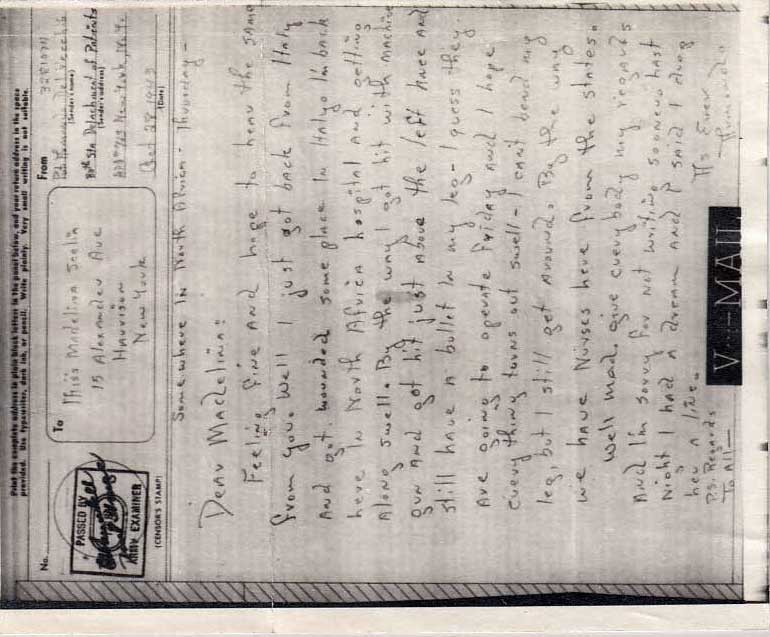 Print the complete address in plain block letters in the panel below, and your return address in the space
provided. Use typewriter, dark ink, or pencil. Write plainly. Very small writing is not suitable.
No.
PASSED BY
ARMY EXAMINER
(CENSOR'S STAMP)
To
Miss Madelina
15 Alexander Ave
Harrison
New York
From
Pvt
(Sender's name)
Sta. Detachment of Patients
(Sender's address)
New York, N.Y.
Oct 28, 1943
(Date)
Somewhere In North Africa - Thursday -
Dear Madelina:
Feeling fine And hope to hear the same
from you. Well I just got back from Italy
And got wounded some place In Italy. I'm back
here In North Africa hospital and getting
Along swell. By the way I got hit with machine
gun And got hit just Above the left knee And
still have A bullet In my leg - I guess they
Are going to operate Friday And I hope
everything turns out swell - I can't bend my
leg, but I still get Around. By the way
we have Nurses here from the states.
Well Mad. give everybody my regards
And I'm sorry for Not writing sooner. Last
Night I had A dream And I said I drop
her A line.
P.S. Regards
To All -
As Ever
V···-MAIL